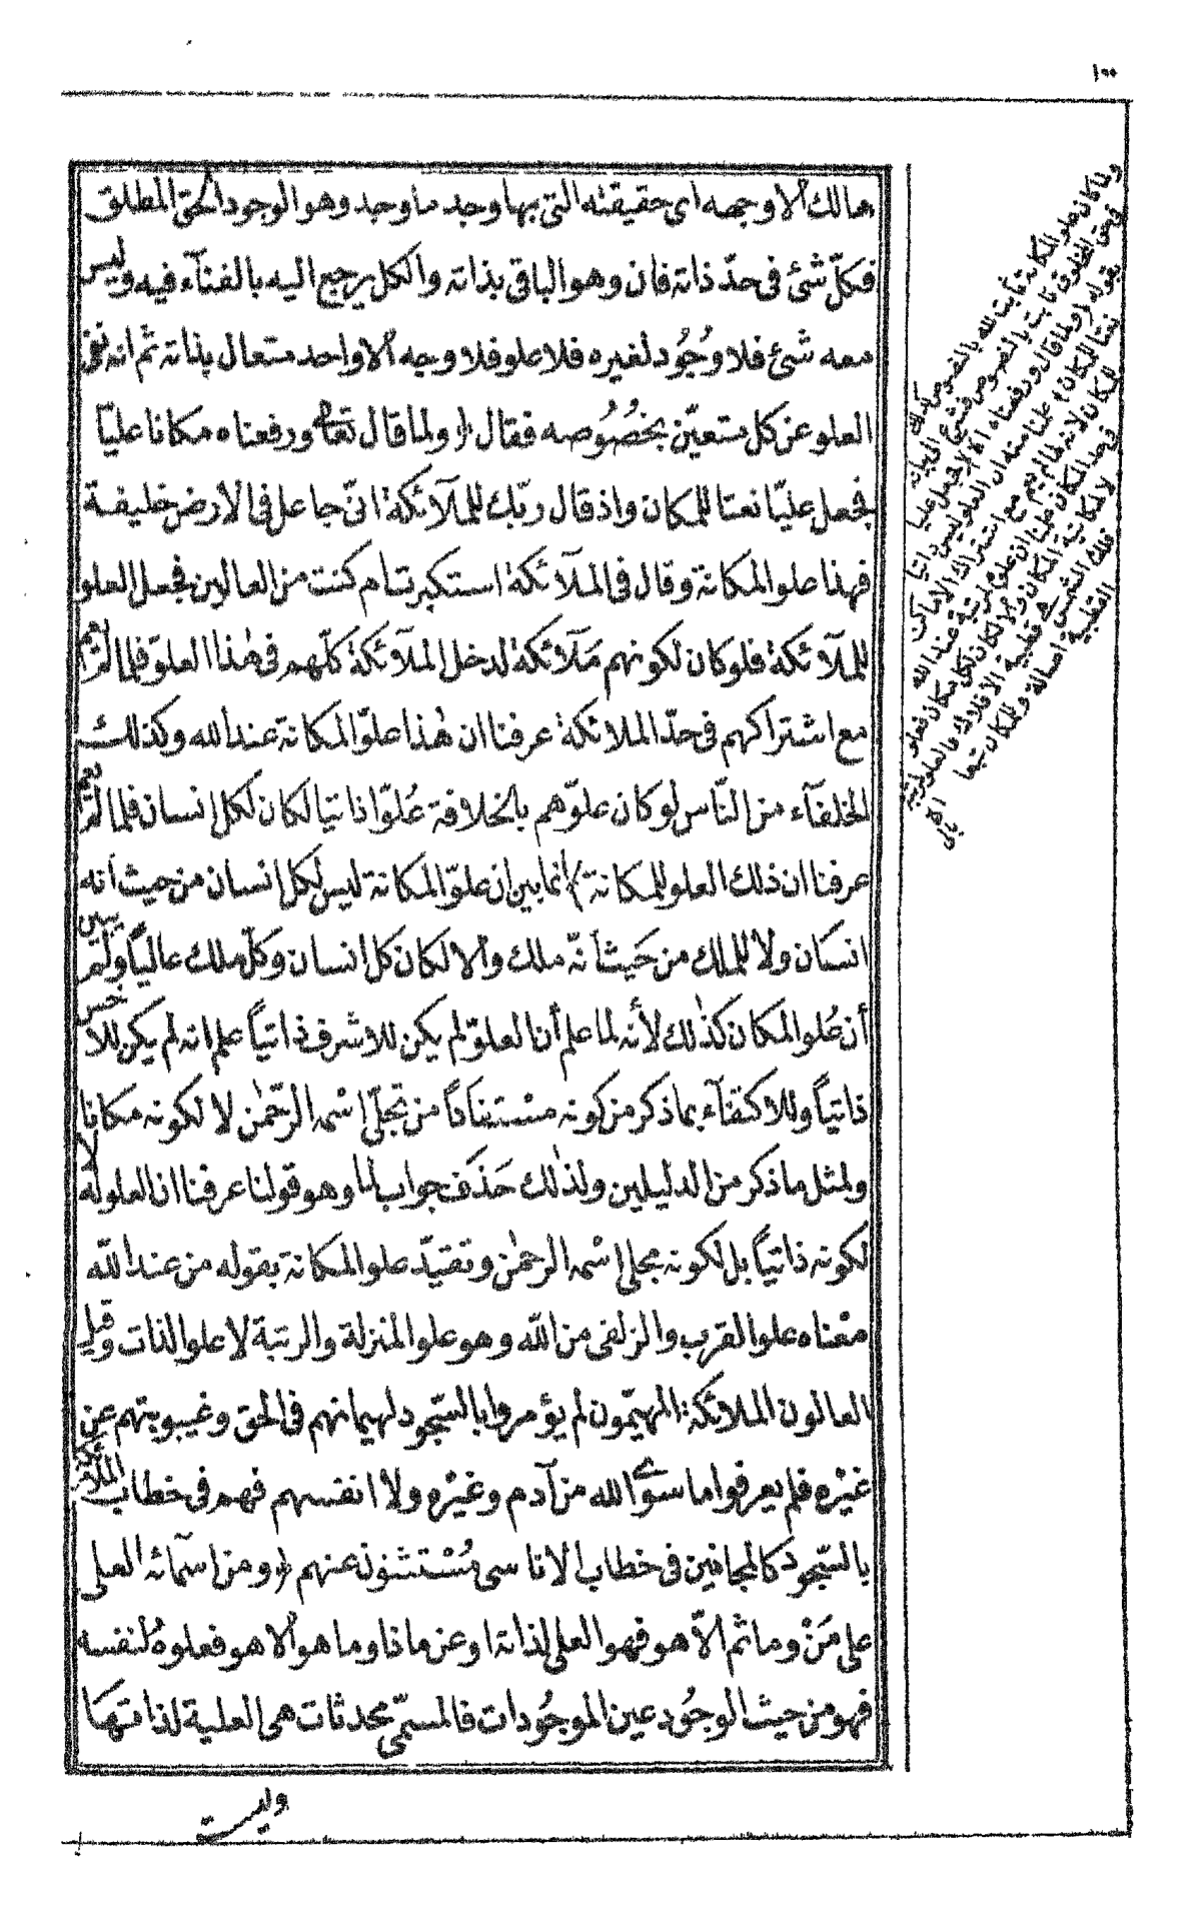 ١٠٠
هالك الا وجهه اى حقيقته التى بها وجد ما وجد وهو الوجود الحق المطلق
فكلّ شئ فى حدّ ذاته فان وهو الباقى بذاته والكل يرجع اليه بالفنآء فيه وليس
معه شئ فلا وُجُود لغيره فلا علو فلا وجه الا واحد متعال بذاته ثم انه نفى
العلو عن كل متعيّن بخصُوُصه فقال (ولما قال تعالى ورفعناه مكانا عليّا
فجعل عليّا نعتا للمكان واذ قال ربّك للملآئكة انّى جاعل فى الارض خليفة
فهذا علو المكانة وقال فى الملآئكة استكبرت ام كنت من العالين فجعل العلو
للملآئكة فلو كان لكونهم مَلآئكة لدخل الملآئكة كلّهم فى هٰذا العلوّ فلما لم يعم
مع اشتراكهم فى حدّ الملائكة عرفنا ان هٰذا علوّ المكانة عند الله وكذلك
الخلفآء من النّاس لو كان علوّهم بالخلافة عُلوّا ذاتيا لكان لكل انسان فلما لم يعم
عرفنا ان ذلك العلو للمكانة) انما بين ان علوّ المكانة ليس لكل انسان من حيث انه
انسَان ولا للملك من حَيث أنّه ملك والا لكان كل انسان وكلّ ملك عاليًا ولم يبين
أن عُلو المكان كذٰلك لأنه لما علم أن العلوّ لم يكن للاشرف ذاتيًا علم انه لم يكن للاخس
ذاتيًا وللاكتفآء بما ذكر من كونه مسْتفادًا من تجلّى اسْمه الرّحمٰن لا لكونه مكانا
ولمثل ما ذكر من الدليلين ولذٰلك حَذَف جواب لما وهو قولنا عرفنا ان العلو له لا
لكونه ذاتيًا بل لكونه مجلى اسْمه الرحمٰن وتقيّد علو المكانة بقوله من عند الله
معْناه علو القرب والزلفى من اللّه وهو علو المنزلة والرتبة لا علو الذات وقيل
العالون الملائكة المهيّمون لم يؤمروا بالسّجود لهيمانهم فى الحق وغيبوبتهم عن
غيْره فلم يعرفوا ما سوى الله من آدم وغيْره ولا انفسهم فهم فى خطاب الملآئكة
بالسّجود كالمجانين فى خطاب الاناسى مُسْتثنون عنهم (ومن اسمآئه العلى
على مَنْ وما ثم الاّ هو فهو العلى لذاته او عن ماذا وما هو الا هو فعلوهُ لنفسه
فهو من حيث الوجُود عين الموجُودات فالمسمّى محدثات هى العلية لذاتهَا
وليست
ولما كان علو المكانة ثابت لله بالنصوص كذلك
فى حق المخلوق ثابت بالنصوص فشرع الى بيانه
بقوله (ولما قال ورفعناه) الا جعل عليا
نعتا للمكان) علمنا منه ان العلو ليس ذاتيا
للمكان لانه لما لم يعم مع اشتراك الاماكن
فى حد المكان علمنا ان علو مرتبة عند الله
لا مكانية المكان ولا لكان لكل مكان فعلو
فلك الشمس قطبية الافلاك فالعلو لمرتبة
القطبية اصالة وللمكان تبعا
بالى اه